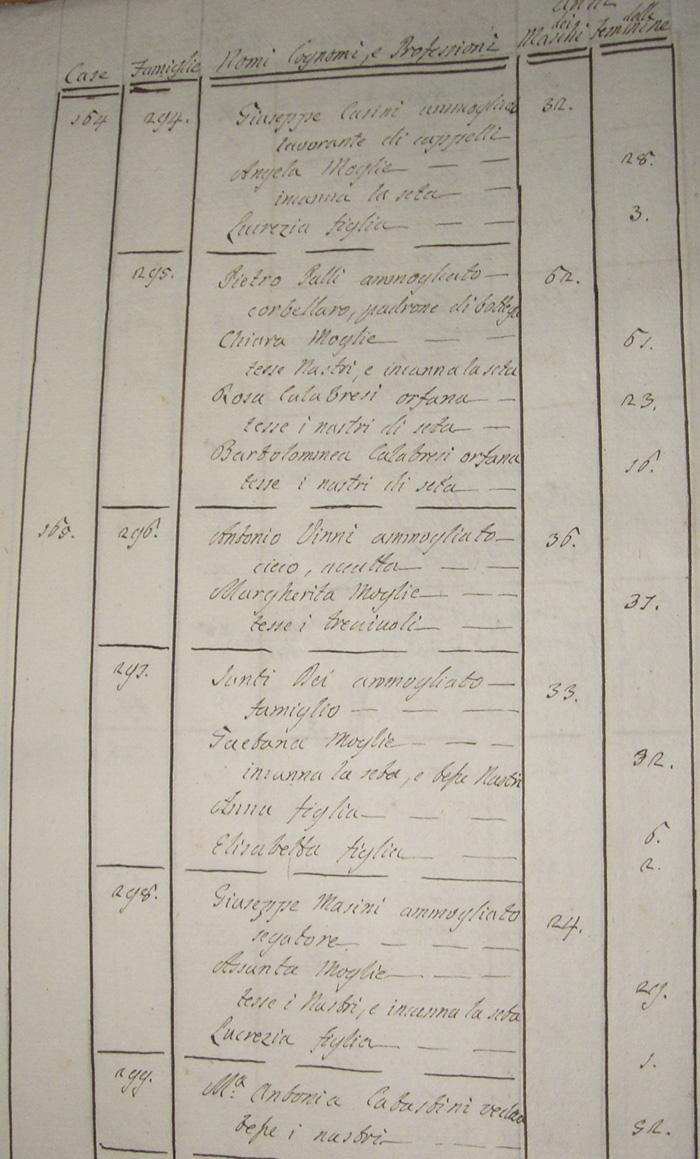 Anni
dei dalle
Case Famiglie Nomi Cognomi, e Professioni Maschi Feminine
164 294. Giuseppe Casini ammogliato 32.
lavorante di cappelli
Angela Moglie 28.
incanna la seta
Lucrezia figlia 3.
295. Pietro Palli ammogliato 62.
corbellaro, padrone di bottega
Chiara Moglie 61.
tesse Nastri, e incanna la seta
Rosa Calabresi orfana 23.
tesse i nastri di seta
Bartolommea Calabresi orfana 16.
tesse i nastri di seta
165. 296. Antonio Vinni ammogliato 36.
cieco, accatta
Margherita Moglie 31.
tesse i
297. Santi Bei ammogliato 33.
famiglio
Gaetana Moglie 32.
incanna la seta, e tesse Nastri
Anna figlia 6.
Elisabetta figlia 2.
298. Giuseppe Masini ammogliato 24.
segatore
Assunta Moglie 29.
tesse i Nastri, e incanna la seta
Lucrezia figlia 1.
299. Mª. Antonia vedova 52.
tesse i nastri